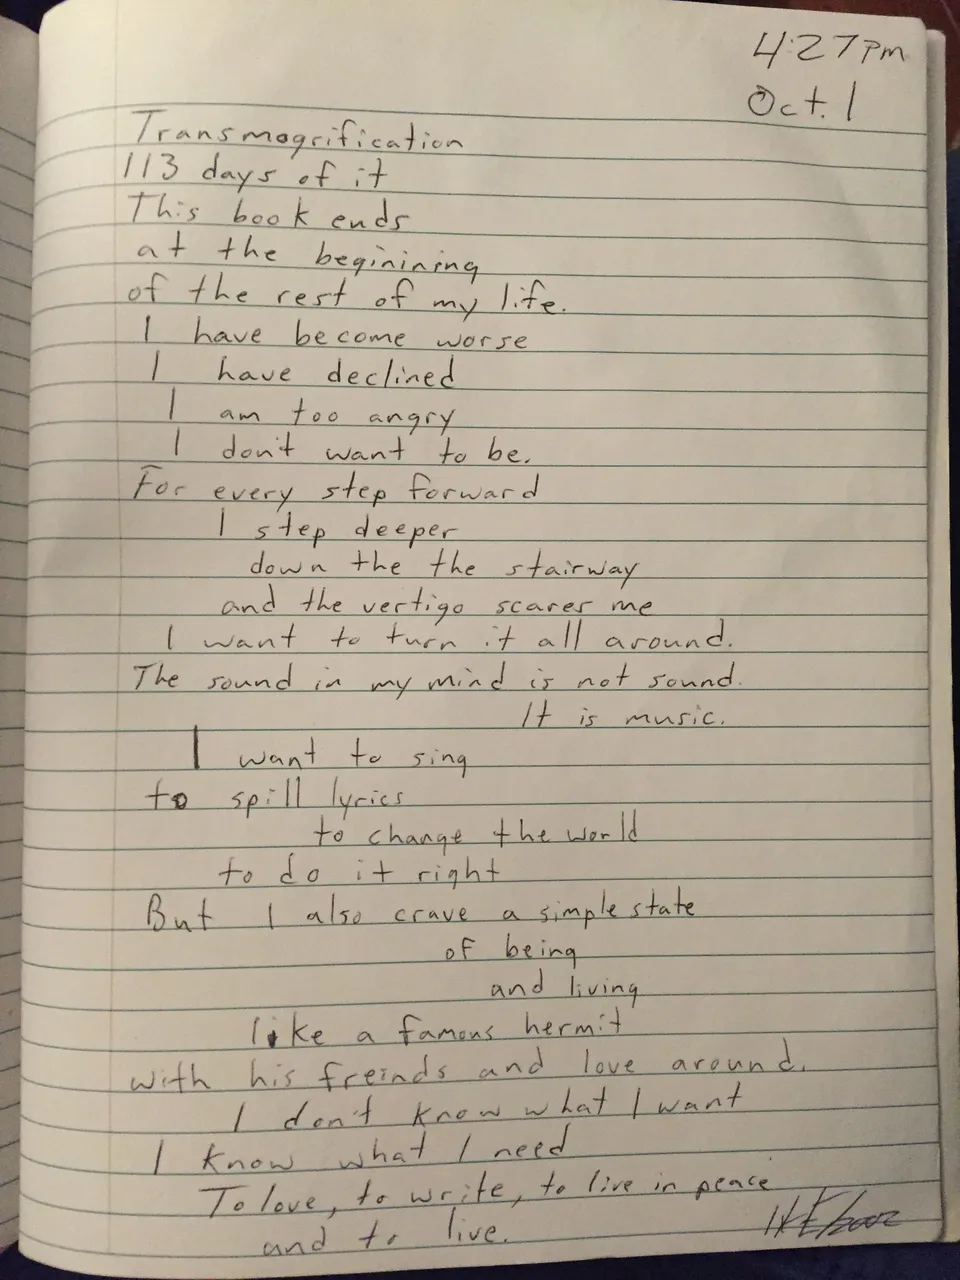 4:27pm
Oct. 1
Transmogrification
113 days of it
This book ends
at the beginining
of the rest of my life.
I have become worse
I have declined
I am too angry
I don't want to be.
For every step forward
I step deeper
down the the stairway
and the vertigo scares me
I want to turn it all around.
The sound in my mind is not sound.
It is music.
I want to sing
to spill lyrics
to change the world
to do it right
But I also crave a simple state
of being
and living
like a famous hermit
with his freinds and love around.
I don't know what I want
I know what I need
To love, to write, to live in peace
and to live.